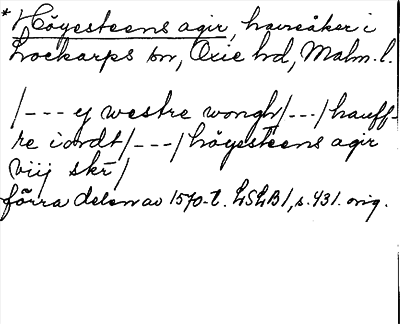 *Höyesteens agir, havreåker i
Lockarps sn, Oxie hd, Malm. l.
/--- ey westre wongh/---/hauff-
re iordt/---/höyesteens agir
viij skr/
förra delen av 1570-t. LSLB1, s. 431. orig.